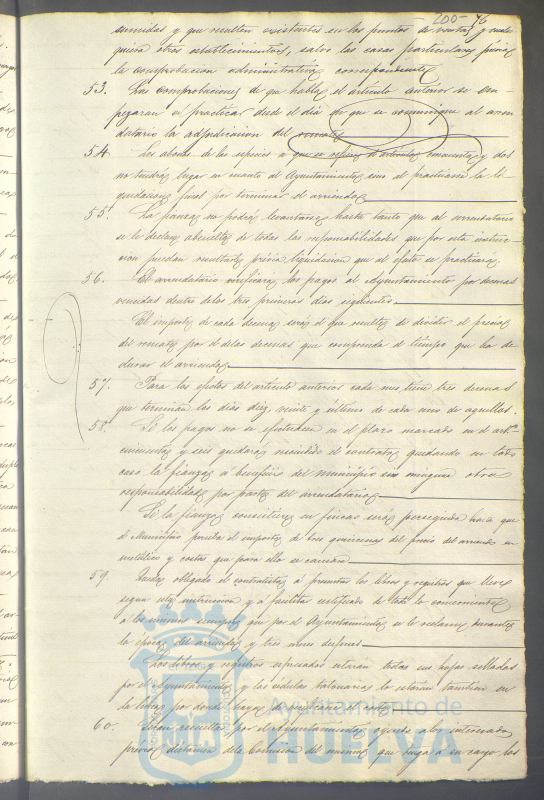 200 76
sumidas y que resulten existentes en los puntos de venta y cuales
quiera otros establecimientos, salvo las casas particulares previa
la comprobacion administrativa correspondiente
53. Las comprobaciones de que habla el articulo anterior se em-
pezaran á practicar desde el dia en que se comunique al arren
datario la adjudicacion del remate
54. Los abonos de las especies á que se refiere el articulo cincuenta y dos
no tendrá lugar en cuanto al Ayuntamiento sino al practicarse la li
quidacion final por terminar el arriendo
55. La fianza no podrá levantarse hasta tanto que al arrendatario
se le declare absuelto de todas las responsabilidades que por esta instruc
cion puedan resultarle prévia liquidacion que al efecto se practicará.
56. El arrendatario verificará los pagos al Ayuntamiento por decenas
vencidas dentro de los tres primeros dias siguientes.
El importe de cada decena será el que resulte de dividir el precio
del remate por el de las decenas que comprenda el tiempo que ha de
durar el arriendo
57. Para los efectos del articulo anterior cada mes tiene tres decenas
que terminan los dias diez, veinte y ultimo de cada mes de aquellos.
58. Si los pagos no se efectuasen en el plazo marcado en el artº
cincuenta y seis quedará rescindido el contrato quedando en todo
caso la fianza á beneficio del Municipio sin ninguna otra
responsabilidad por parte del arrendatario
Si la fianza consistiere en fincas será perseguida hasta que
el Municipio perciba el importe de tres quincenas del precio del arriendo en
metálico y costas que para ello se causen
59. Queda obligado el contratista á presentar los libros y registros que lleve
segun esta instruccion y á facilitar certificado de todo lo concerniente
á los mismos siempre que por el Ayuntamiento se le reclame durante
la época del arriendo y tres meses despues
Los libros y registros espresados estarán todas sus hojas selladas
por el Ayuntamiento y las cédulas talonarias lo estarán tambien en
la linea por donde haya de verificarse el corte
60. Serán resueltas por el Ayuntamiento oyendo á los interesados
previo dictamen de la Comision del mismo que tenga á su cargo los
Ayuntamiento de
HUELVA